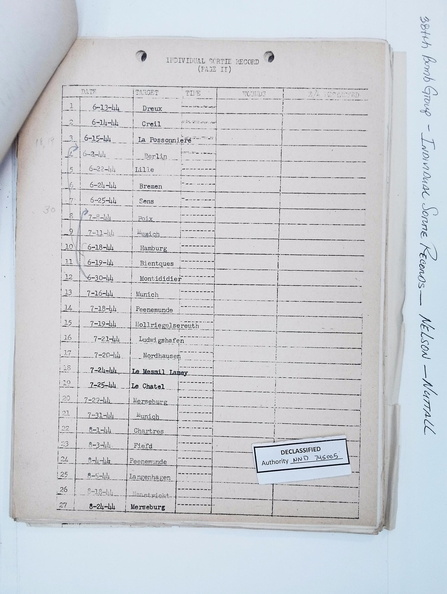 INDIVIDUAL SORTIE RECORD
(PAGE II)
DATE TARGET TIME
1 6-13-44 Dreux
2 6-14-44 Creil
3 6-15-44 La Possonniere
4 Berlin
5 6-22-44 Lille
6 6-24-44 Bremen
7 6-25-44 Sens
8 Poix
9 7-11-44 Munich
10 6-18-44 Hamburg
11 6-19-44 Bientques
12 6-30-44 Montididier
13 7-16-44 Munich
14 7-18-44 Peenemunde
15 7-19-44 Hollriegelsereuth
16 7-21-44 Ludwigshafen
17 7-20-44 Nordhausen
18 7-24-44 Le Mesnil
19 7-25-44 Le Chatel
20 Merseburg
21 7-31-44 Munich
22 8-1-44 Chartres
23 8-3-44
24 8-4-44 Peenemunde
25 Langenhagen
26
27 8-24-44 Merseburg
DECLASSIFIED
Authority NND 745005
384th Bomb Group - Individual Sortie Records - NELSON - NUTTALL